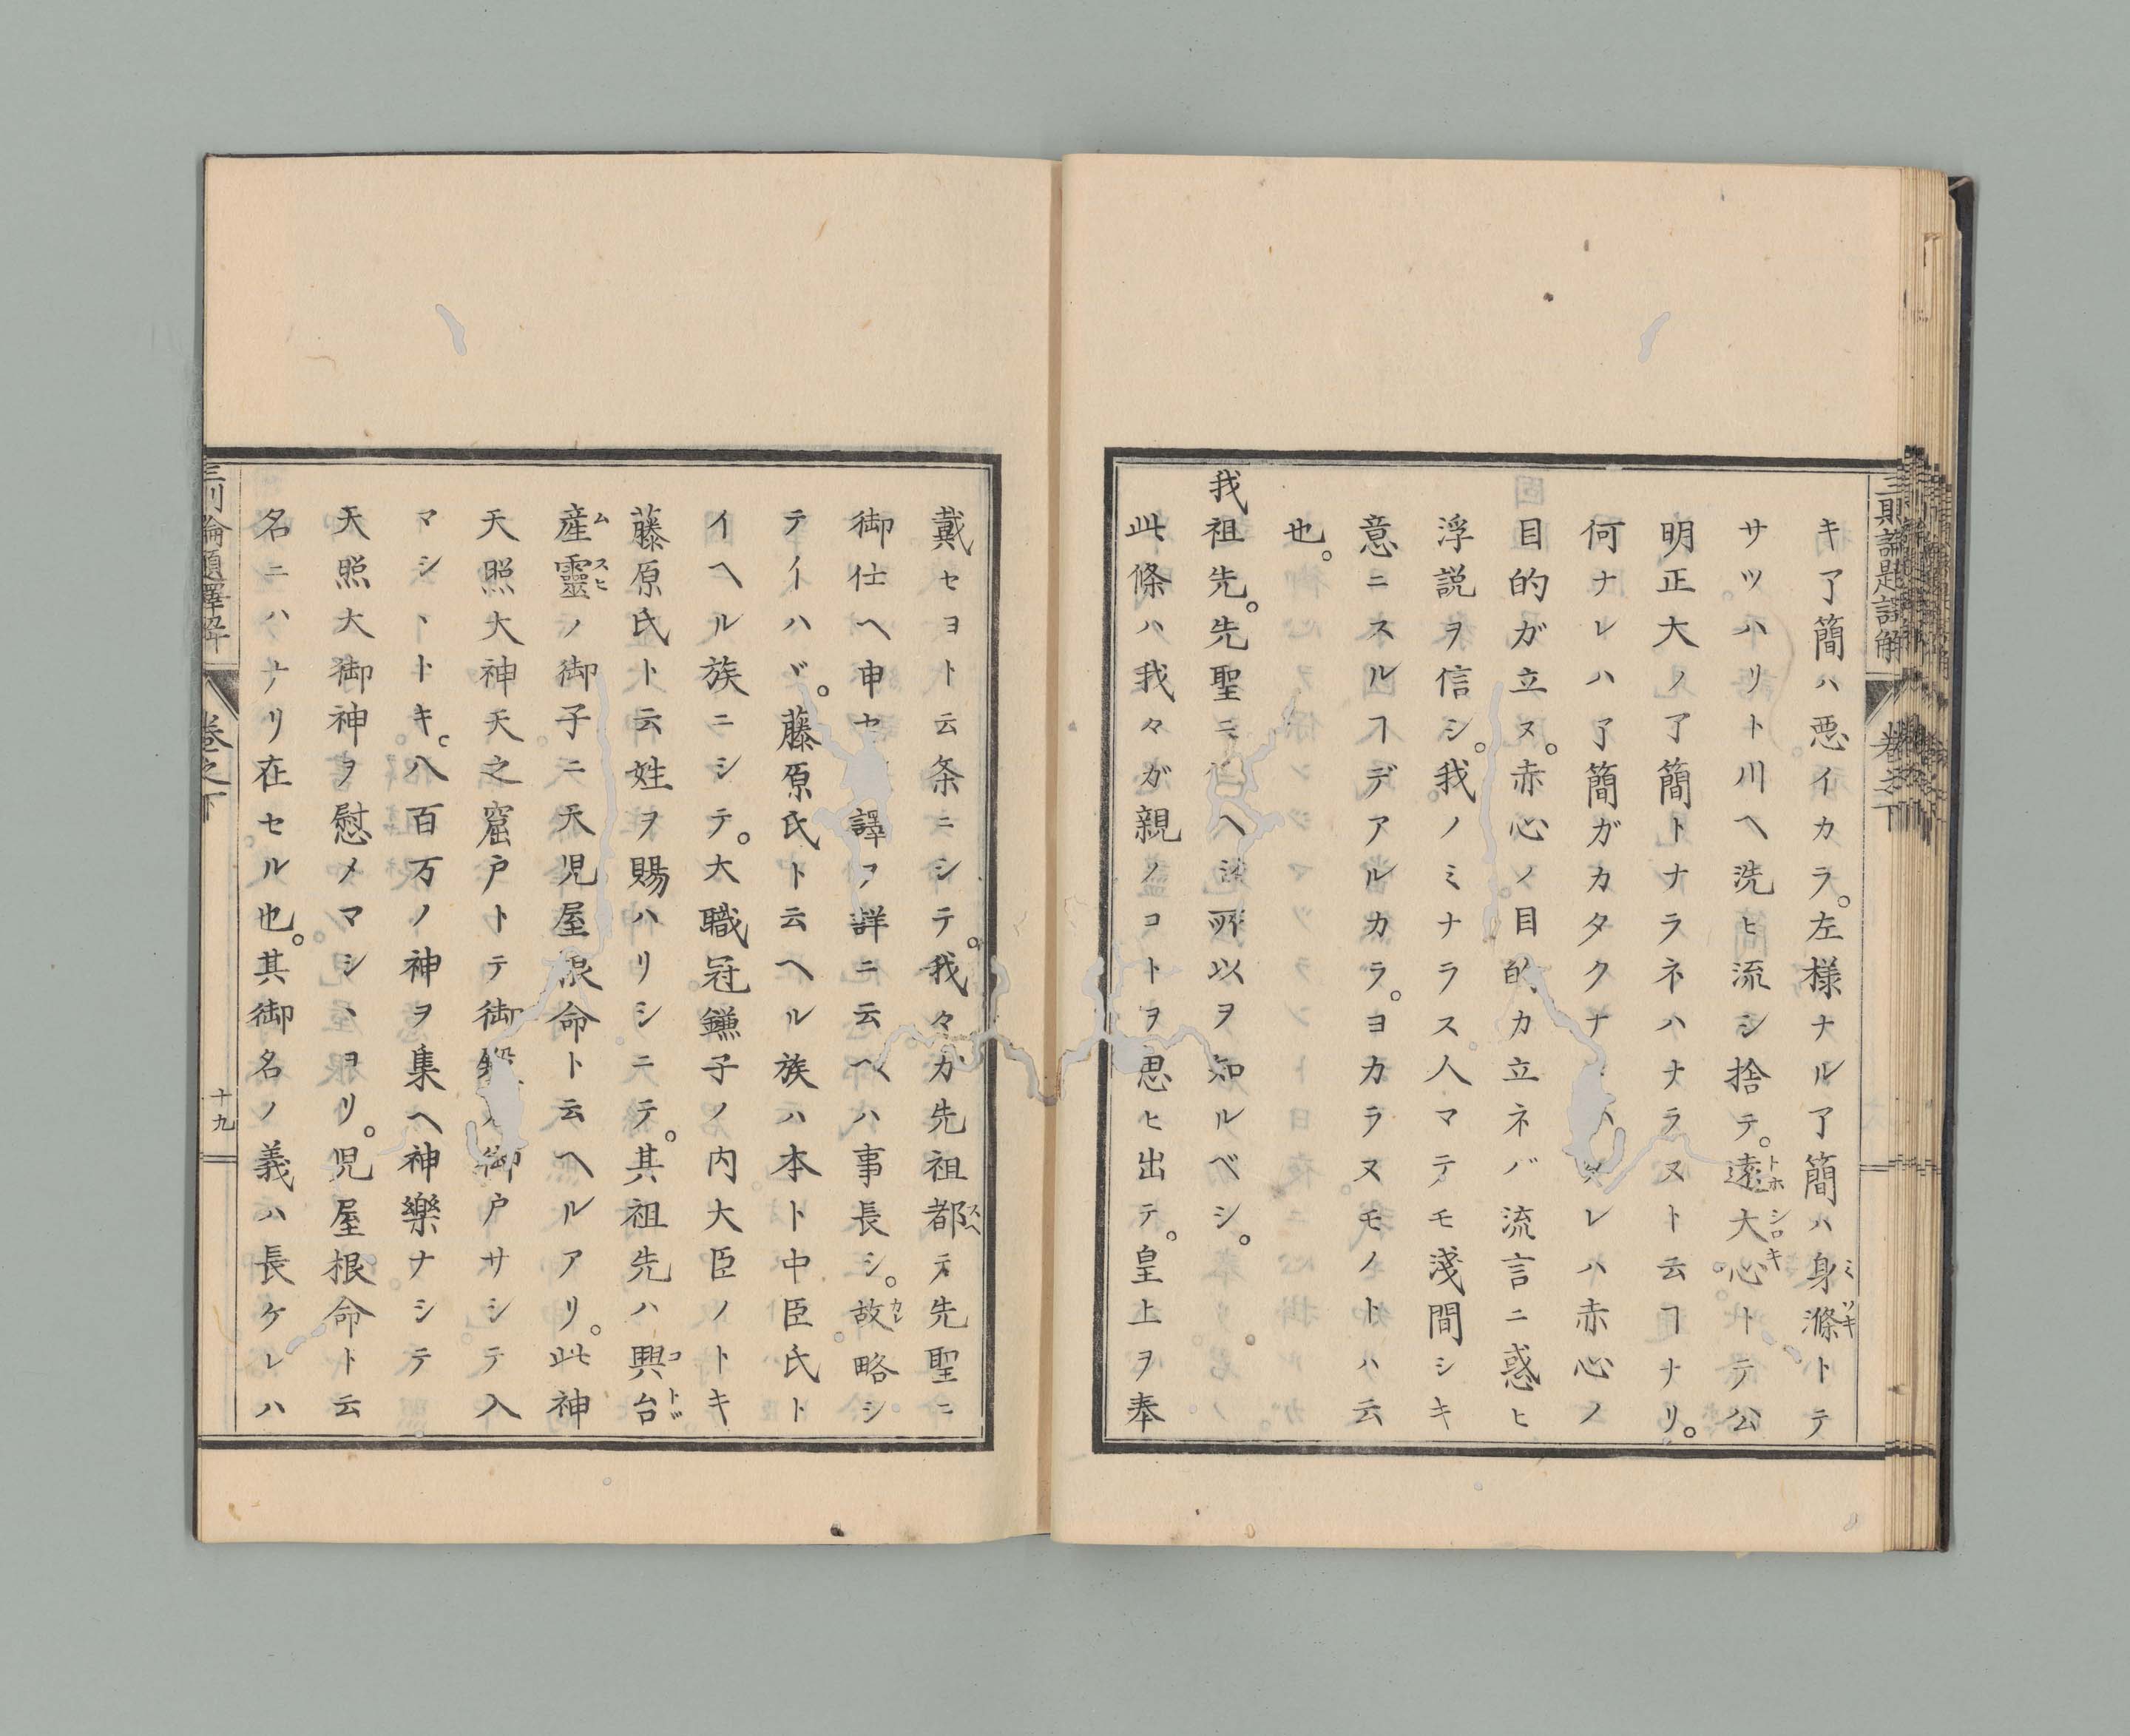 キ了簡ハ悪イカラ。左様ナル了簡ハ身滌トテ
サツハリト川ヘ洗ヒ流シ捨テ。遠大心トテ公
明正大ノ了簡トナラネハナラヌト云ヿナリ。
何ナレハ了簡ガカタクナ レハ赤心ノ
目的ガ立ヌ。赤心ノ目的カ立ネバ流言ニ惑ヒ
浮説ヲ信シ。我ノミナラス人マテモ淺間シキ
意ニスルヿデアルカラ。ヨカラヌモノトハ云
也。
我祖先。先聖ニ ヘ 所以ヲ知ルベシ。
此條ハ我々ガ親ノコトヲ思ヒ出テ。皇上ヲ奉
戴セヨト云条ニシテ。我々カ先祖都テ先聖ニ
御仕ヘ申セ 譯ヲ詳ニ云ヘハ事長シ。故略シ
テイハヾ。藤原氏ト云ヘル族ハ本ト中臣氏ト
イヘル族ニシテ。大職冠鎌子ノ内大臣ノトキ
藤原氏ト云姓ヲ賜ハリシニテ。其祖先ハ興台
産靈ノ御子ニ天児屋根命ト云ヘルアリ。此神
天照大神天之窟戸トテ御 御戸サシテ入
マシヽトキ。八百万ノ神ヲ集ヘ神樂ナシテ
天照大御神ヲ慰メマシヽヨリ。児屋根命ト云
名ニハナリ在セル也。其御名ノ義ハ長ケレハ
卷之下
十九